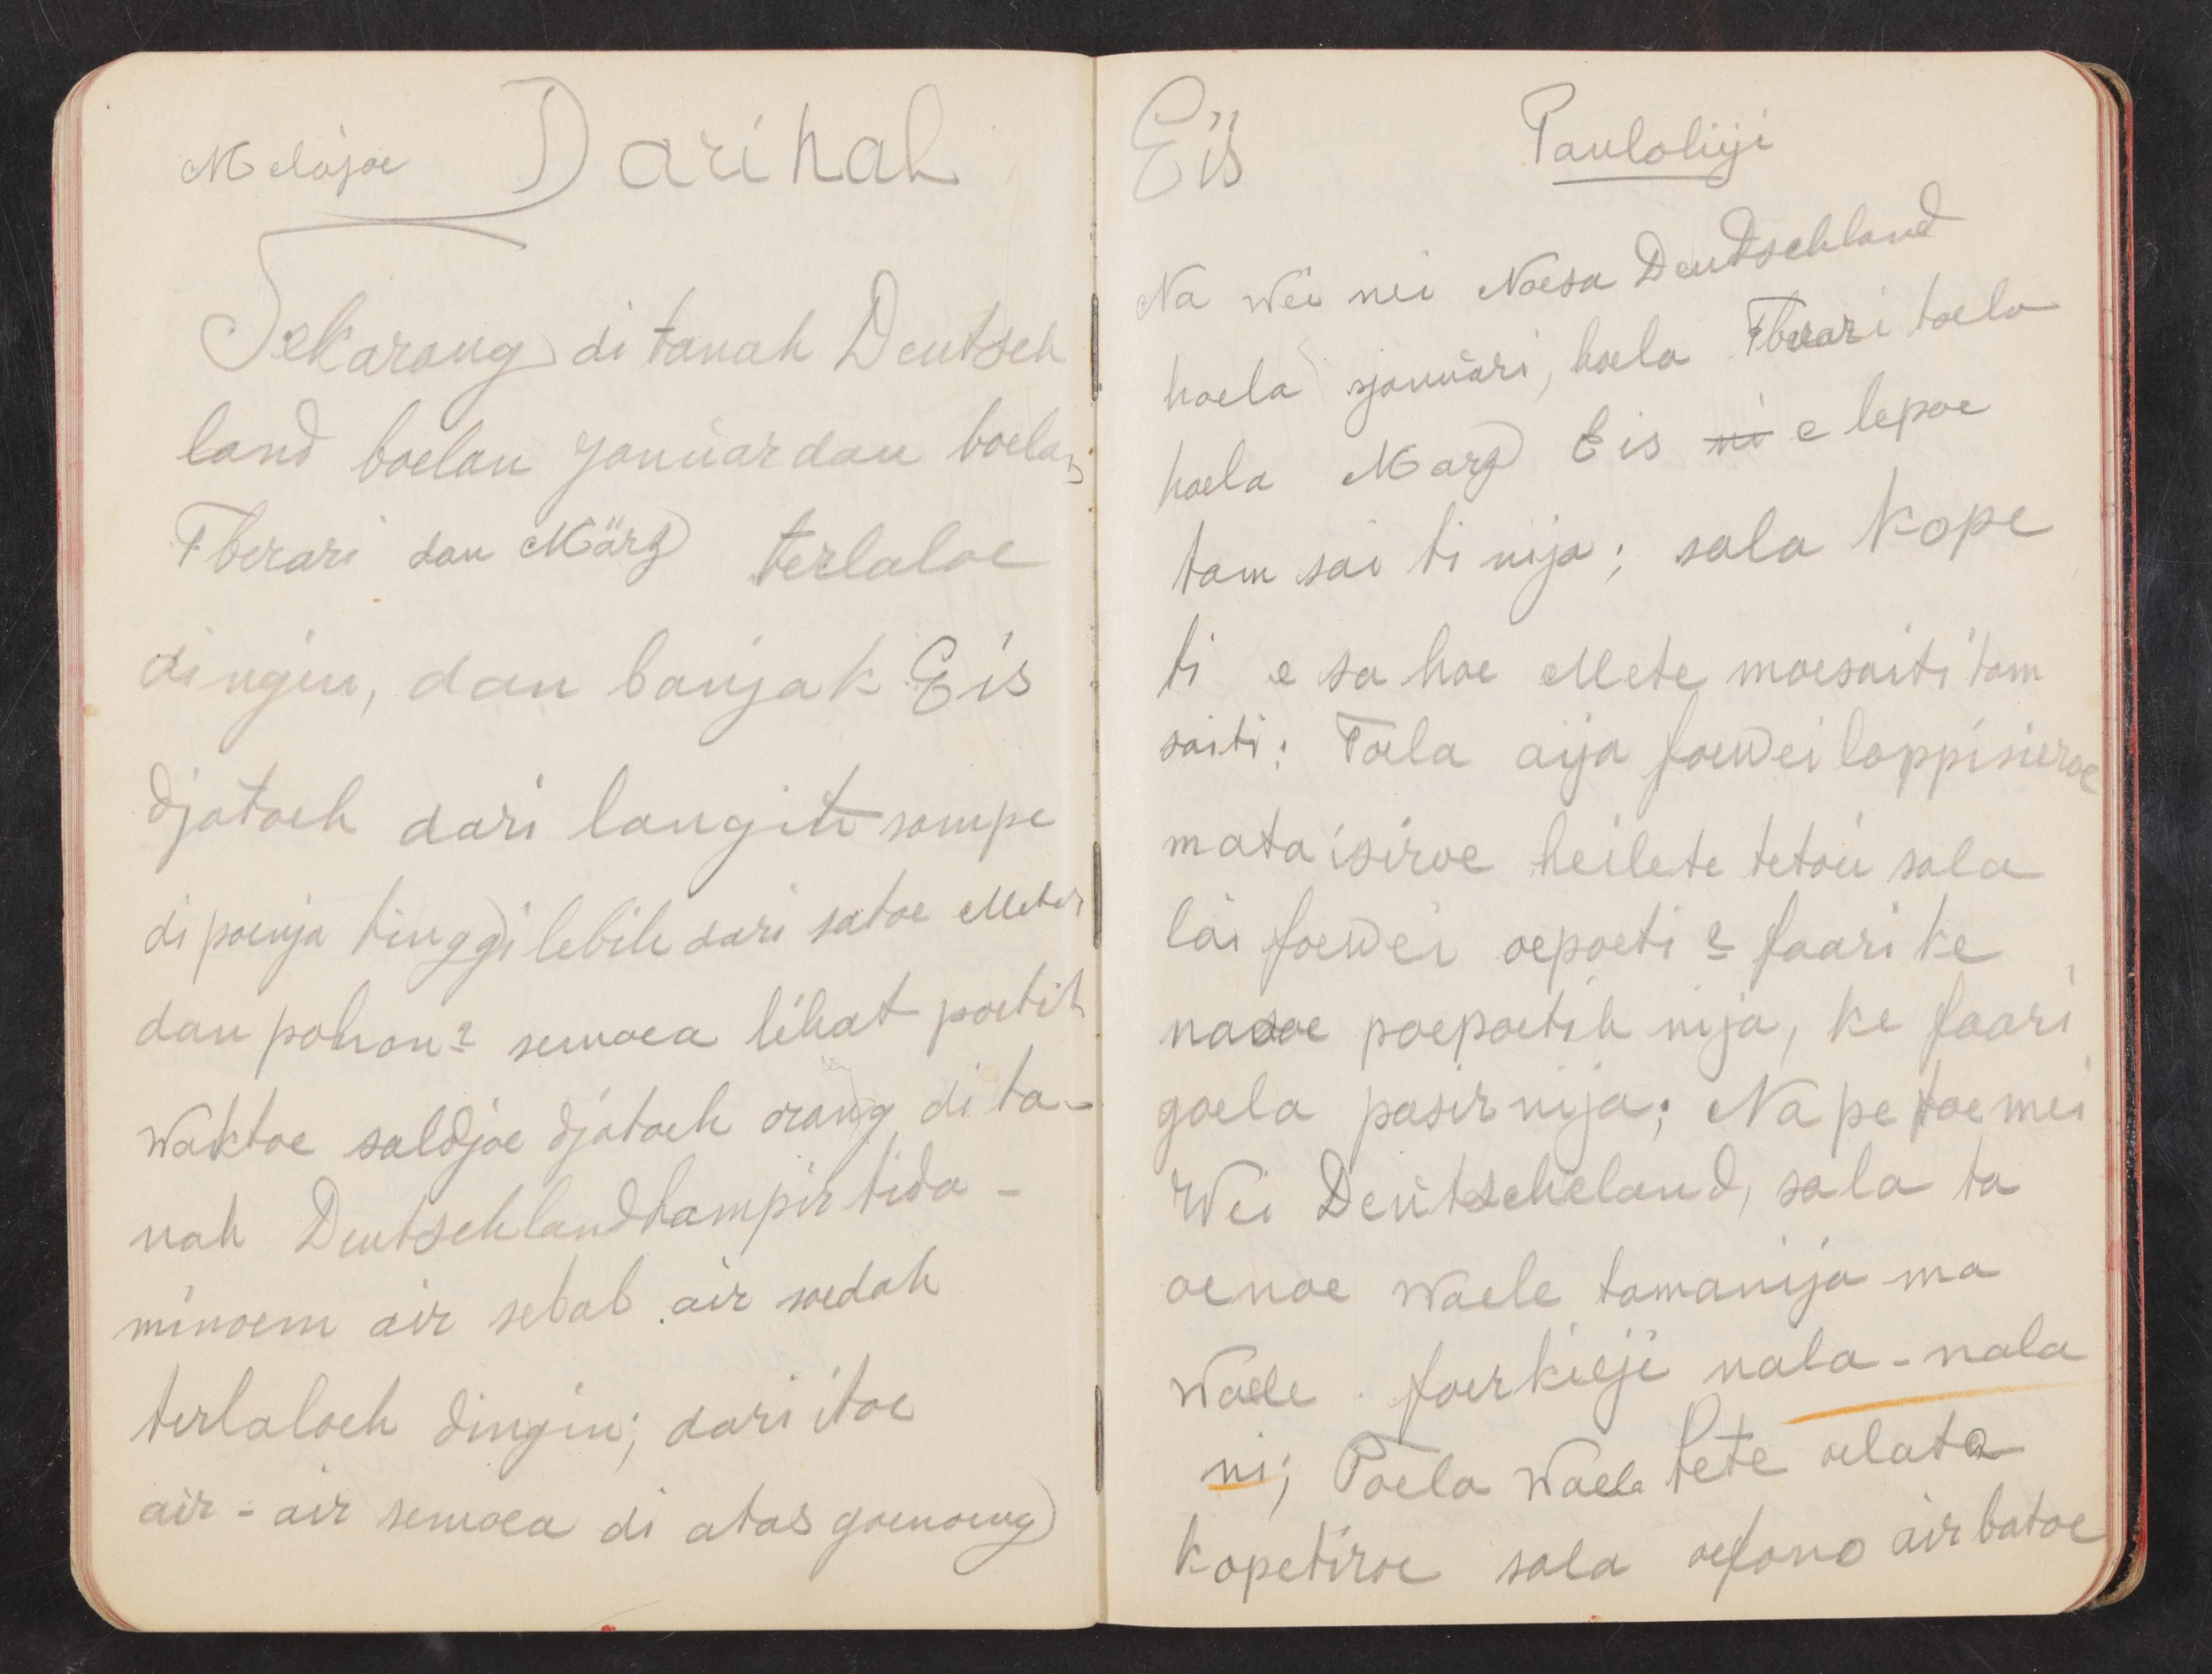 Melajoe Darihal
Sekarang di tanah Deutsch
land boelan Januar dan boelan
Fberari dan März terlaloe
dingin, dan banjak Eis
djatoeh dari langit sampe
di poenja tinggi lebih dari satoe Meter
dan pohon2 semoea lihat poetih
waktoe saldjoe djatoeh orang di ta-
nah Deutschland hampir tida-
minoem air sebab air soedah
terlaloeh dingin; dari itoe
air-air semoea di atas goenoeng
Eis Paulohiji
Na wei nei Noesa Deutschland
hoela Januari, hoela Fberari toela
hoela Marz Eis ni e lepoe
tam sai ti nija; sala kope
ti e sa hoe Mete moesaiti tam
saiti: Toela aija foewei lappisieroe
mata isiroe heilete tetoü sala
lai foewei oepoeti 2 faari ke
nasoe poepoetih nija, ke faari
goela pasir nija; Na pe toe mei
Wei Deutscheland, sala ta
oenoe waele tamanija ma
Waele foerkieji nala-nala
ni; Toela waele tete oelate
kopetiroe sala oefono air batoe